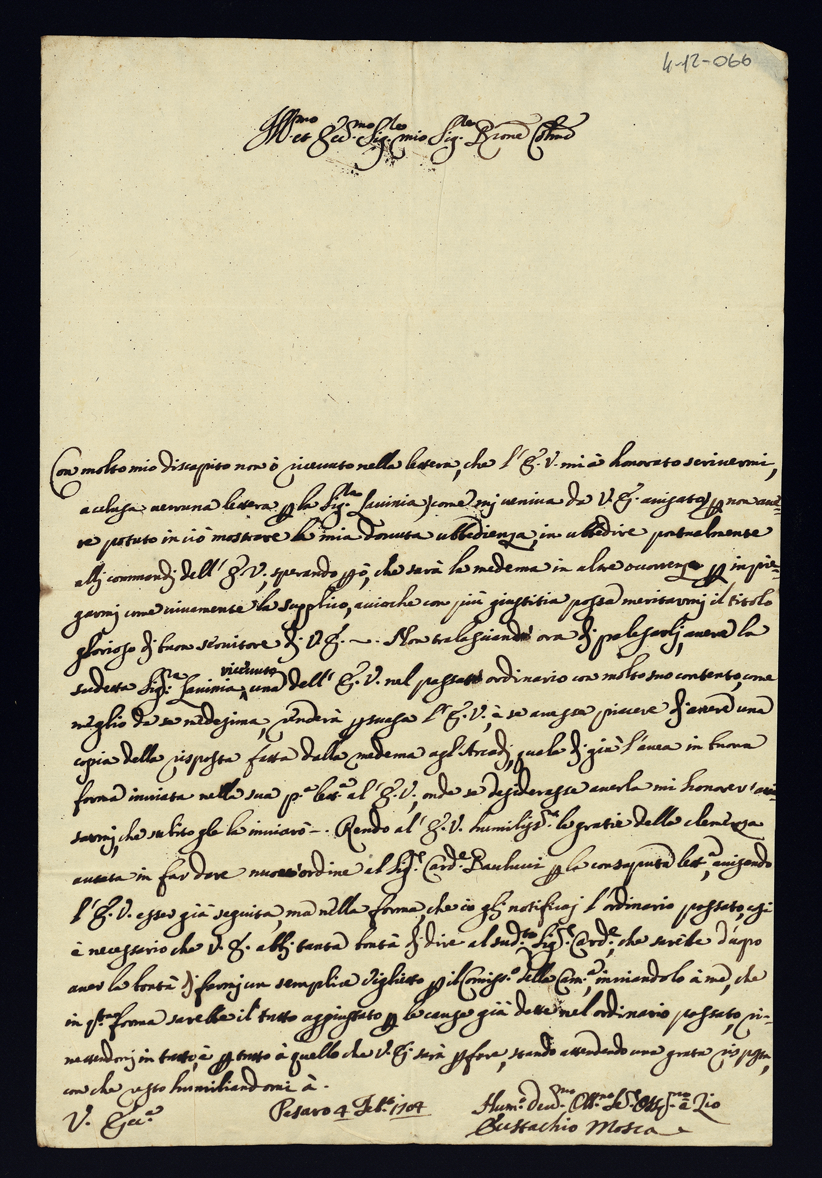 4-12-066
Ill.mo et Ecc.mo Sig.re mio Sig.re Prone Col.mo
Con molto mio discapito non ò riceuuto nella lettera, che l'E.V. mi à honorato scriuermi,
acclusa ueruna lettera p la Sig.ra Lauinia, come mi ueniua da V.E. auisato, p non aue-
re potuto in ciò mostrare la mia douuta ubbedienza, in ubbedire pontualmente
alli commandi dell'E.V., sperando però, che sarà la medema in altre occorrenze p inpie-
garmi come viuamente la supplico, acioche con più giustitia possa meritarmi il titolo
glorioso di buon seruitore di V.E. -. Non tralasciando ora di palesarli, auere la
sudetta Sig.ra Lauinia riceuuto una dell'E.V. nel passato ordinario con molto suo contento, come
meglio da se medesima, renderà psuasa l'E.V., è se auesse piacere di auere una
copia della risposta fatta dalla medema agl'Arcadi, quale di già l'auea in buona
forma inuiata nella sua p.a lett.a al'E.V., onde se desiderasse auerla mi honorer
sarmi, che subito gle la inuiarò -. Rendo al'E.V. humiliss.me le gratie della clemenza
auuta in far dare nuouo ordine al Sig.r Card.e Paulucci p la consaputa lett.a, auisando
l'E.V. esser già seguita, ma nella forma, che io gli notificai l'ordinario passato, e già
è necessario che V.E. abbi tanta bontà di dire al sud.to Sig.r Card.e, che sarebbe d'uopo
auer la bontà di farmi un semplice viglietto p il Comiss.o della Cam.a, inuiandolo à me, che
in q.sta forma sarebbe il tutto aggiustato p le cause già dette nel ordinario passato, ri-
mettendomi in tutto, è p tutto à quello che V.E. sarà p fare, stando attendendo una grata risposta,
con che resto humiliandomi à.
V. Ecc.a
Pesaro 4 Feb.o 1704
Hum.o Deu.mo Obb.mo Se.re Zio
Eustachio Mosca